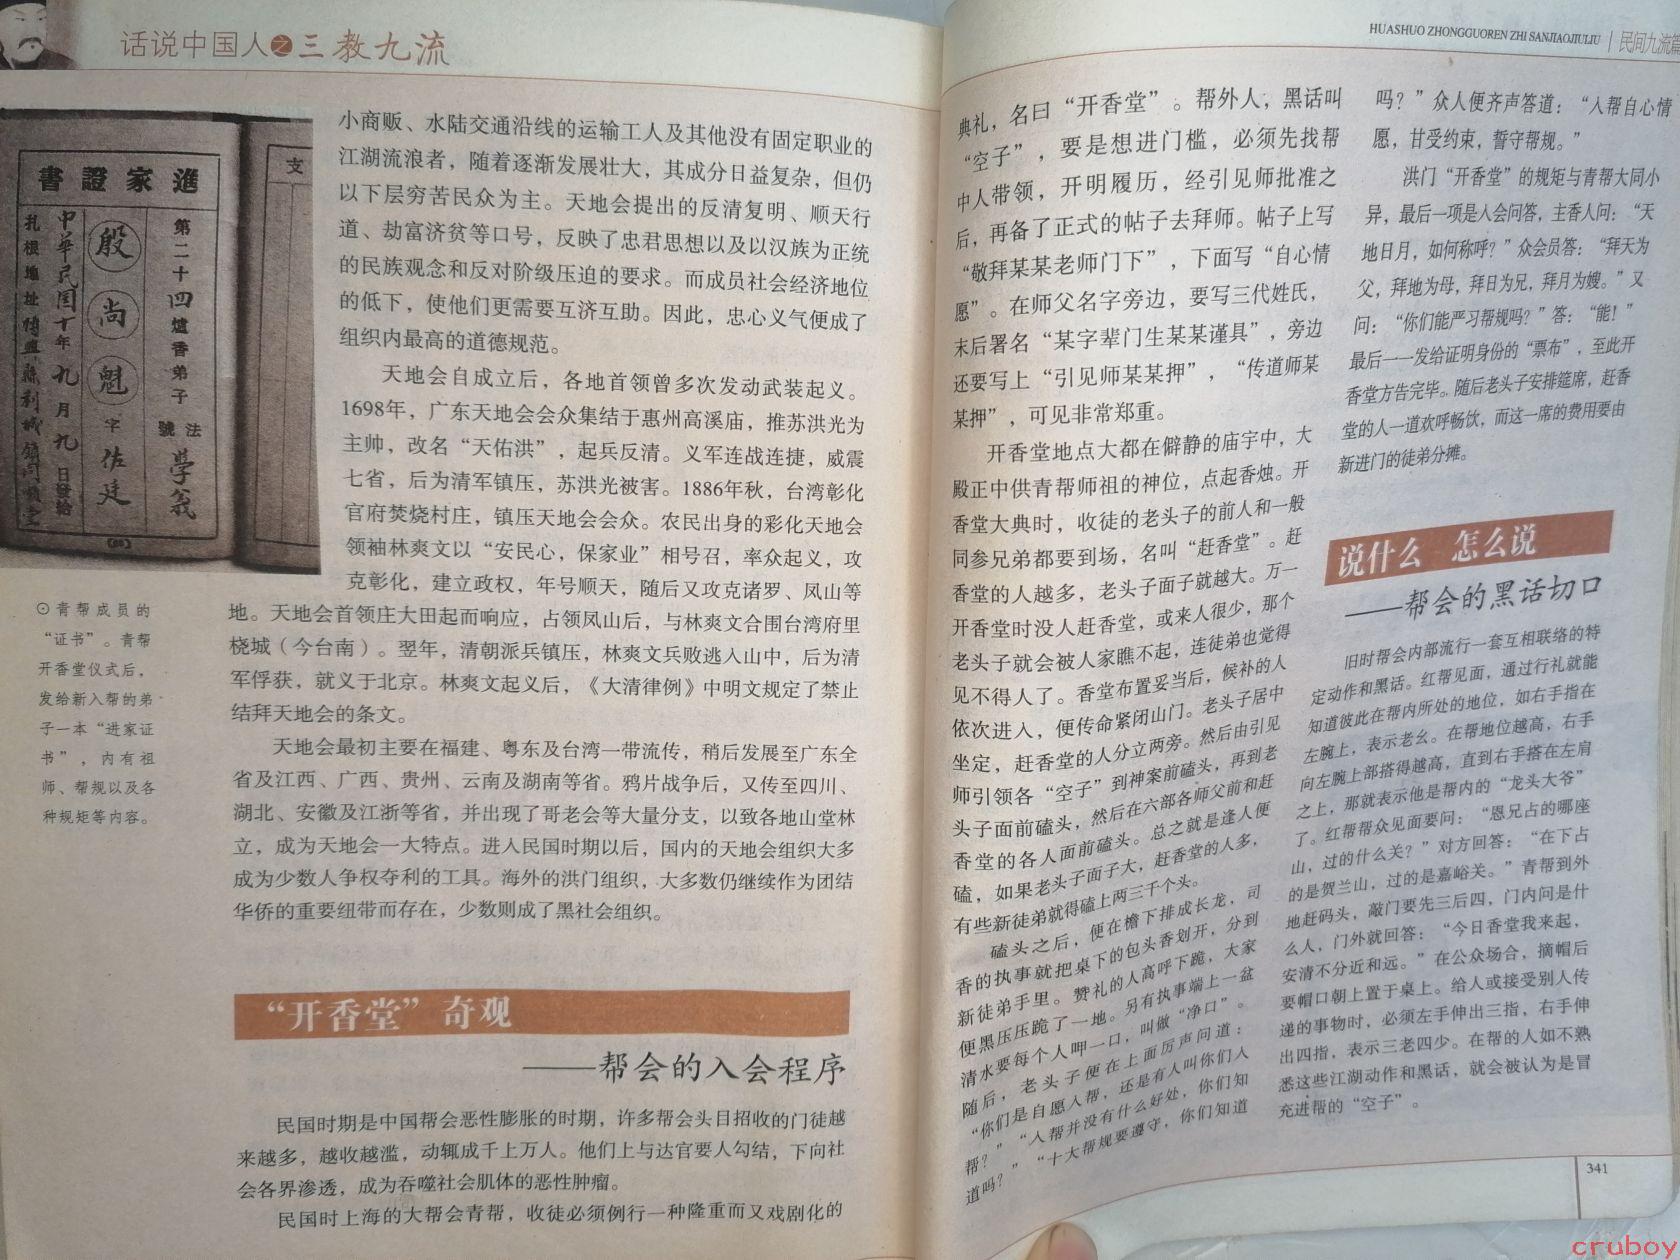 话说中国人之三教九流
進家證書
支
第二十四爐香弟子
法號
學
殷尚魁
字佐廷
中華民国十年九月九日發给
⊙青帮成员的
“证书”。青帮
开香堂仪式后，
发给新入帮的弟
子一本“进家证
书”，内有祖
师、帮规以及各
种规矩等内容。
小商贩、水陆交通沿线的运输工人及其他没有固定职业的
江湖流浪者，随着逐渐发展壮大，其成分日益复杂，但仍
以下层穷苦民众为主。天地会提出的反清复明、顺天行
道、劫富济贫等口号，反映了忠君思想以及以汉族为正统
的民族观念和反对阶级压迫的要求。而成员社会经济地位
的低下，使他们更需要互济互助。因此，忠心义气便成了
组织内最高的道德规范。
天地会自成立后，各地首领曾多次发动武装起义。
1698年，广东天地会会众集结于惠州高溪庙，推苏洪光为
主帅，改名“天佑洪”，起兵反清。义军连战连捷，威震
七省，后为清军镇压，苏洪光被害。1886年秋，台湾彰化
官府焚烧村庄，镇压天地会会众。农民出身的彩化天地会
领袖林爽文以“安民心，保家业”相号召，率众起义，攻
克彰化，建立政权，年号顺天，随后又攻克诸罗、凤山等
地。天地会首领庄大田起而响应，占领凤山后，与林爽文合围台湾府里
桡城（今台南）。翌年，清朝派兵镇压，林爽文兵败逃入山中，后为清
军俘获，就义于北京。林爽文起义后，《大清律例》中明文规定了禁止
结拜天地会的条文。
天地会最初主要在福建、粤东及台湾一带流传，稍后发展至广东全
省及江西、广西、贵州、云南及湖南等省。鸦片战争后，又传至四川、
湖北、安徽及江浙等省，并出现了哥老会等大量分支，以致各地山堂林
立，成为天地会一大特点。进入民国时期以后，国内的天地会组织大多
成为少数人争权夺利的工具。海外的洪门组织，大多数仍继续作为团结
华侨的重要纽带而存在，少数则成了黑社会组织。
“开香堂”奇观
——帮会的入会程序
民国时期是中国帮会恶性膨胀的时期，许多帮会头目招收的门徒越
来越多，越收越滥，动辄成千上万人。他们上与达官要人勾结，下向社
会各界渗透，成为吞噬社会肌体的恶性肿瘤。
民国时上海的大帮会青帮，收徒必须例行一种隆重而又戏剧化的
HUASHUO ZHONGGUOREN ZHI SANJIAOJIULIU | 民间九流篇
典礼，名曰“开香堂”。帮外人，黑话叫
“空子”，要是想进门槛，必须先找帮
中人带领，开明履历，经引见师批准之
后，再备了正式的帖子去拜师。帖子上写
“敬拜某某老师门下”，下面写“自心情
愿”。在师父名字旁边，要写三代姓氏，
末后署名“某字辈门生某某谨具”，旁边
还要写上“引见师某某押”，“传道师某
某押”，可见非常郑重。
开香堂地点大都在僻静的庙宇中，大
殿正中供青帮师祖的神位，点起香烛。开
香堂大典时，收徒的老头子的前人和一般
同参兄弟都要到场，名叫“赶香堂”。赶
香堂的人越多，老头子面子就越大。万一
开香堂时没人赶香堂，或来人很少，那个
老头子就会被人家瞧不起，连徒弟也觉得
见不得人了。香堂布置妥当后，候补的人
依次进入，便传命紧闭山门。老头子居中
坐定，赶香堂的人分立两旁。然后由引见
师引领各“空子”到神案前磕头，再到老
头子面前磕头，然后在六部各师父前和赶
香堂的各人面前磕头。总之就是逢人便
磕，如果老头子面子大，赶香堂的人多，
有些新徒弟就得磕上两三千个头。
磕头之后，便在檐下排成长龙，司
香的执事就把桌下的包头香划开，分到
新徒弟手里。赞礼的人高呼下跪，大家
便黑压压跪了一地。另有执事端上一盆
清水要每个人呷一口，叫做“净口”。
随后，老头子便在上面厉声问道：
“你们是自愿入帮，还是有人叫你们入
帮？”“人帮并没有什么好处，你们知
道吗？”“十大帮规要遵守，你们知道
吗？”众人便齐声答道：“入帮自心情
愿，甘受约束，誓守帮规。”
洪门“开香堂”的规矩与青帮大同小
异，最后一项是入会问答，主香人问：“天
地日月，如何称呼？”众会员答：“拜天为
父，拜地为母，拜日为兄，拜月为嫂。”又
问：“你们能严习帮规吗？”答：“能！”
最后一一发给证明身份的“票布”，至此开
香堂方告完毕。随后老头子安排筵席，赶香
堂的人一道欢呼畅饮，而这一席的费用要由
新进门的徒弟分摊。
说什么 怎么说
——帮会的黑话切口
旧时帮会内部流行一套互相联络的特
定动作和黑话。红帮见面，通过行礼就能
知道彼此在帮内所处的地位，如右手指在
左腕上，表示老幺。在帮地位越高，右手
向左腕上部搭得越高，直到右手搭在左肩
之上，那就表示他是帮内的“龙头大爷”
了。红帮帮众见面要问：“恩兄占的哪座
山，过的什么关？”对方回答：“在下占
的是贺兰山，过的是嘉峪关。”青帮到外
地赶码头，敲门要先三后四，门内问是什
么人，门外就回答：“今日香堂我来起，
安清不分近和远。”在公众场合，摘帽后
要帽口朝上置于桌上。给人或接受别人传
递的事物时，必须左手伸出三指，右手伸
出四指，表示三老四少。在帮的人如不熟
悉这些江湖动作和黑话，就会被认为是冒
充进帮的“空子”。
341
cruboy